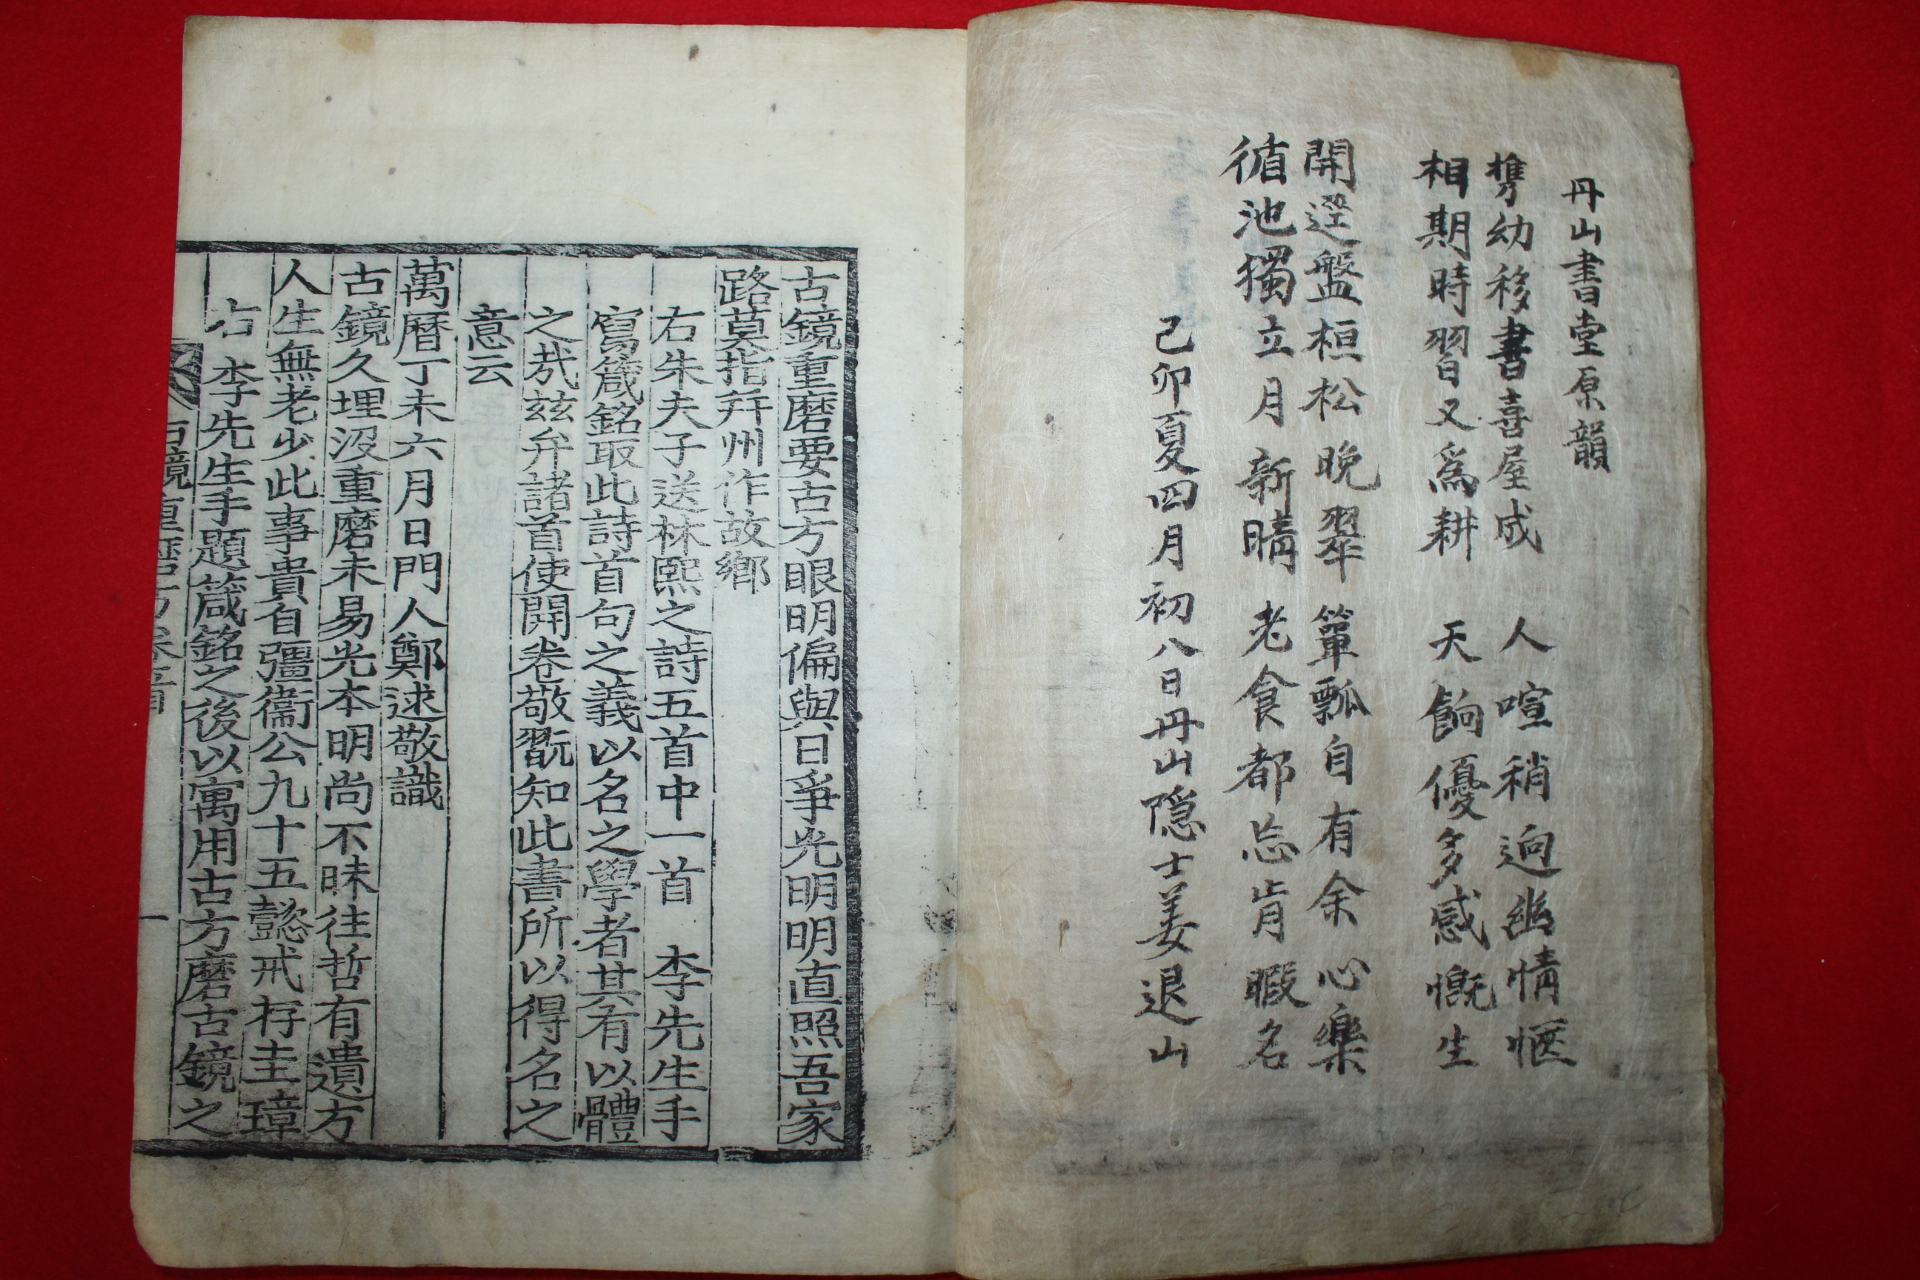 丹山書堂原韻
携幼移書喜屋成 人喧稍逈幽情愜
相期時習又爲耕 天餉優多感慨生
開逕盤桓松晩翠 簞瓢自有余心樂
循池獨立月新晴 老食都忘肯暇名
己卯夏四月初八日丹山隱士姜退山
古鏡重磨要古方眼明偏與日爭光明明直照吾家
路莫指幷州作故鄕
右朱夫子送林熙之詩五首中一首 李先生手
寫箴銘取此詩首句之義以名之學者其有以體
之哉玆弁諸首使開卷敬翫知此書所以得名之
意云
萬曆丁未六月日門人鄭逑敬識
古鏡久埋沒重磨未易光本明尚不昧往哲有遺方
人生無老少此事貴自彊衞公九十五懿戒存圭璋
右 李先生手題箴銘之後以寓用古方磨古鏡之
古鏡重磨方 卷首 一